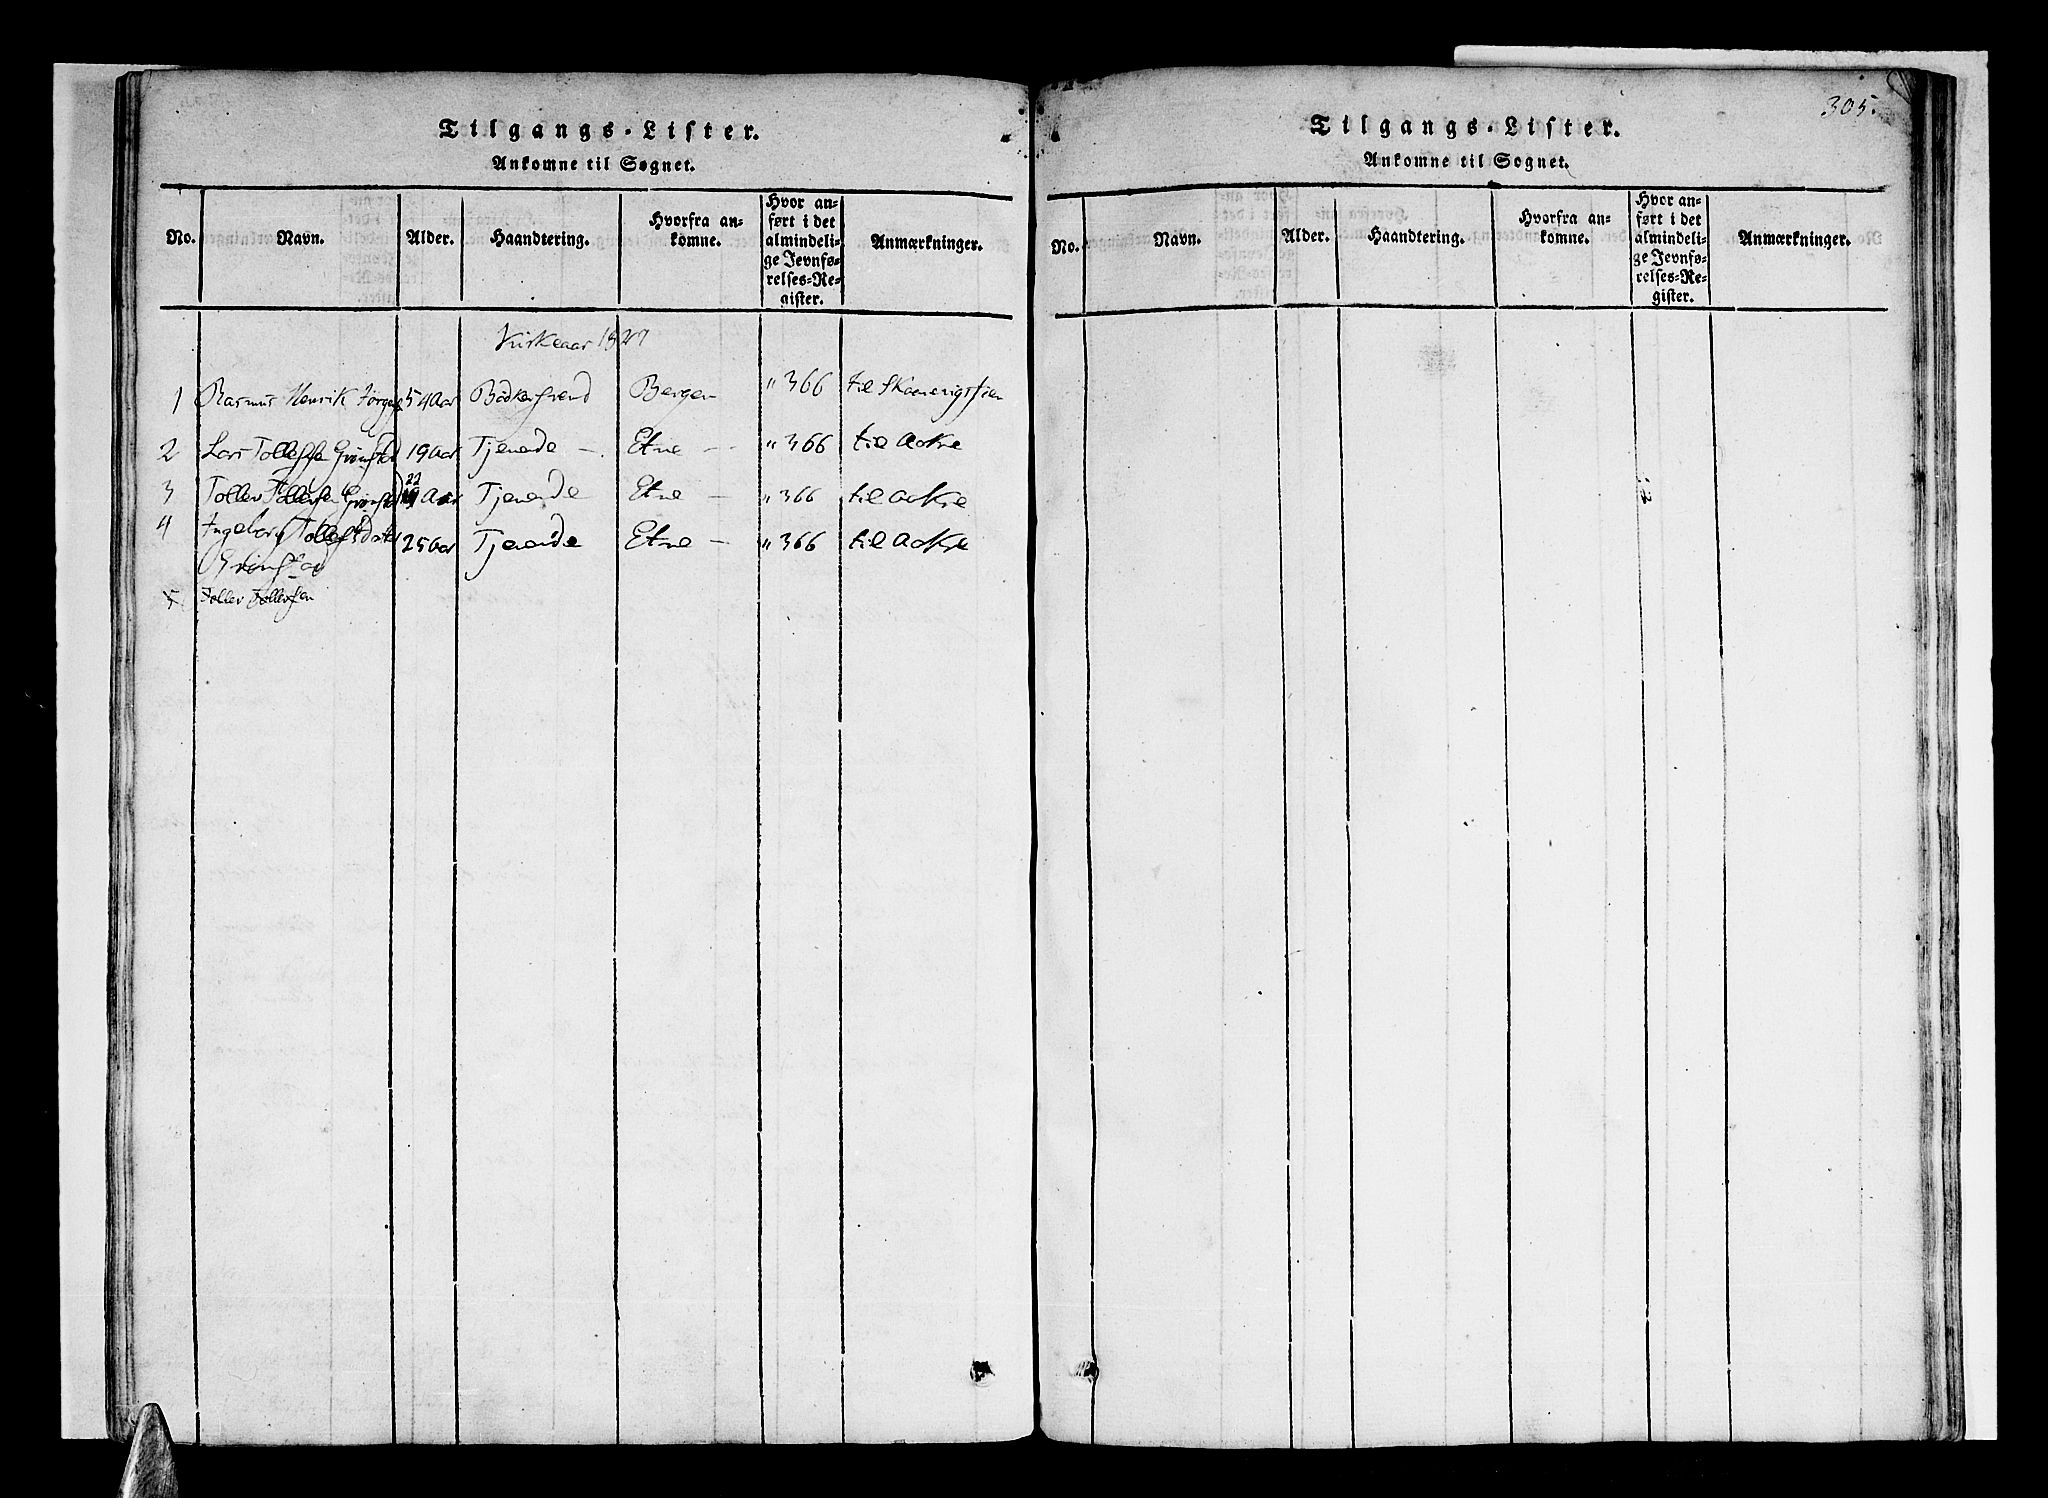 Tilgangs-Lister.
Ankomne til Sognet.
No. Navn. Alder. Haandtering. Hvorfra an-
komne. Hvor an-
ført i det
almindeli-
ge Jevnfø-
relses-Re-
gister. Anmærkninger.
Kirkeaar 1827
1 Rasmus Henrik 54 Aar Bergen " 366 til
2 Lars Tollefsen Grindstad 19 Aar Tjenende - Etne - " 366 til Aakre
3 Tollev Tollefsen 22 Aar Tjenende Etne - " 366 til Aakre
4 Ingeborg 25 Aar Tjenende Etne - " 366 til Aakre
5 Tollev Tollevsen
305.
Tilgangs-Lister.
Ankomne til Sognet.
No. Navn. Alder. Haandtering. Hvorfra an-
komne. Hvor an-
ført i det
almindeli-
ge Jevnfø-
relses-Re-
gister. Anmærkninger.